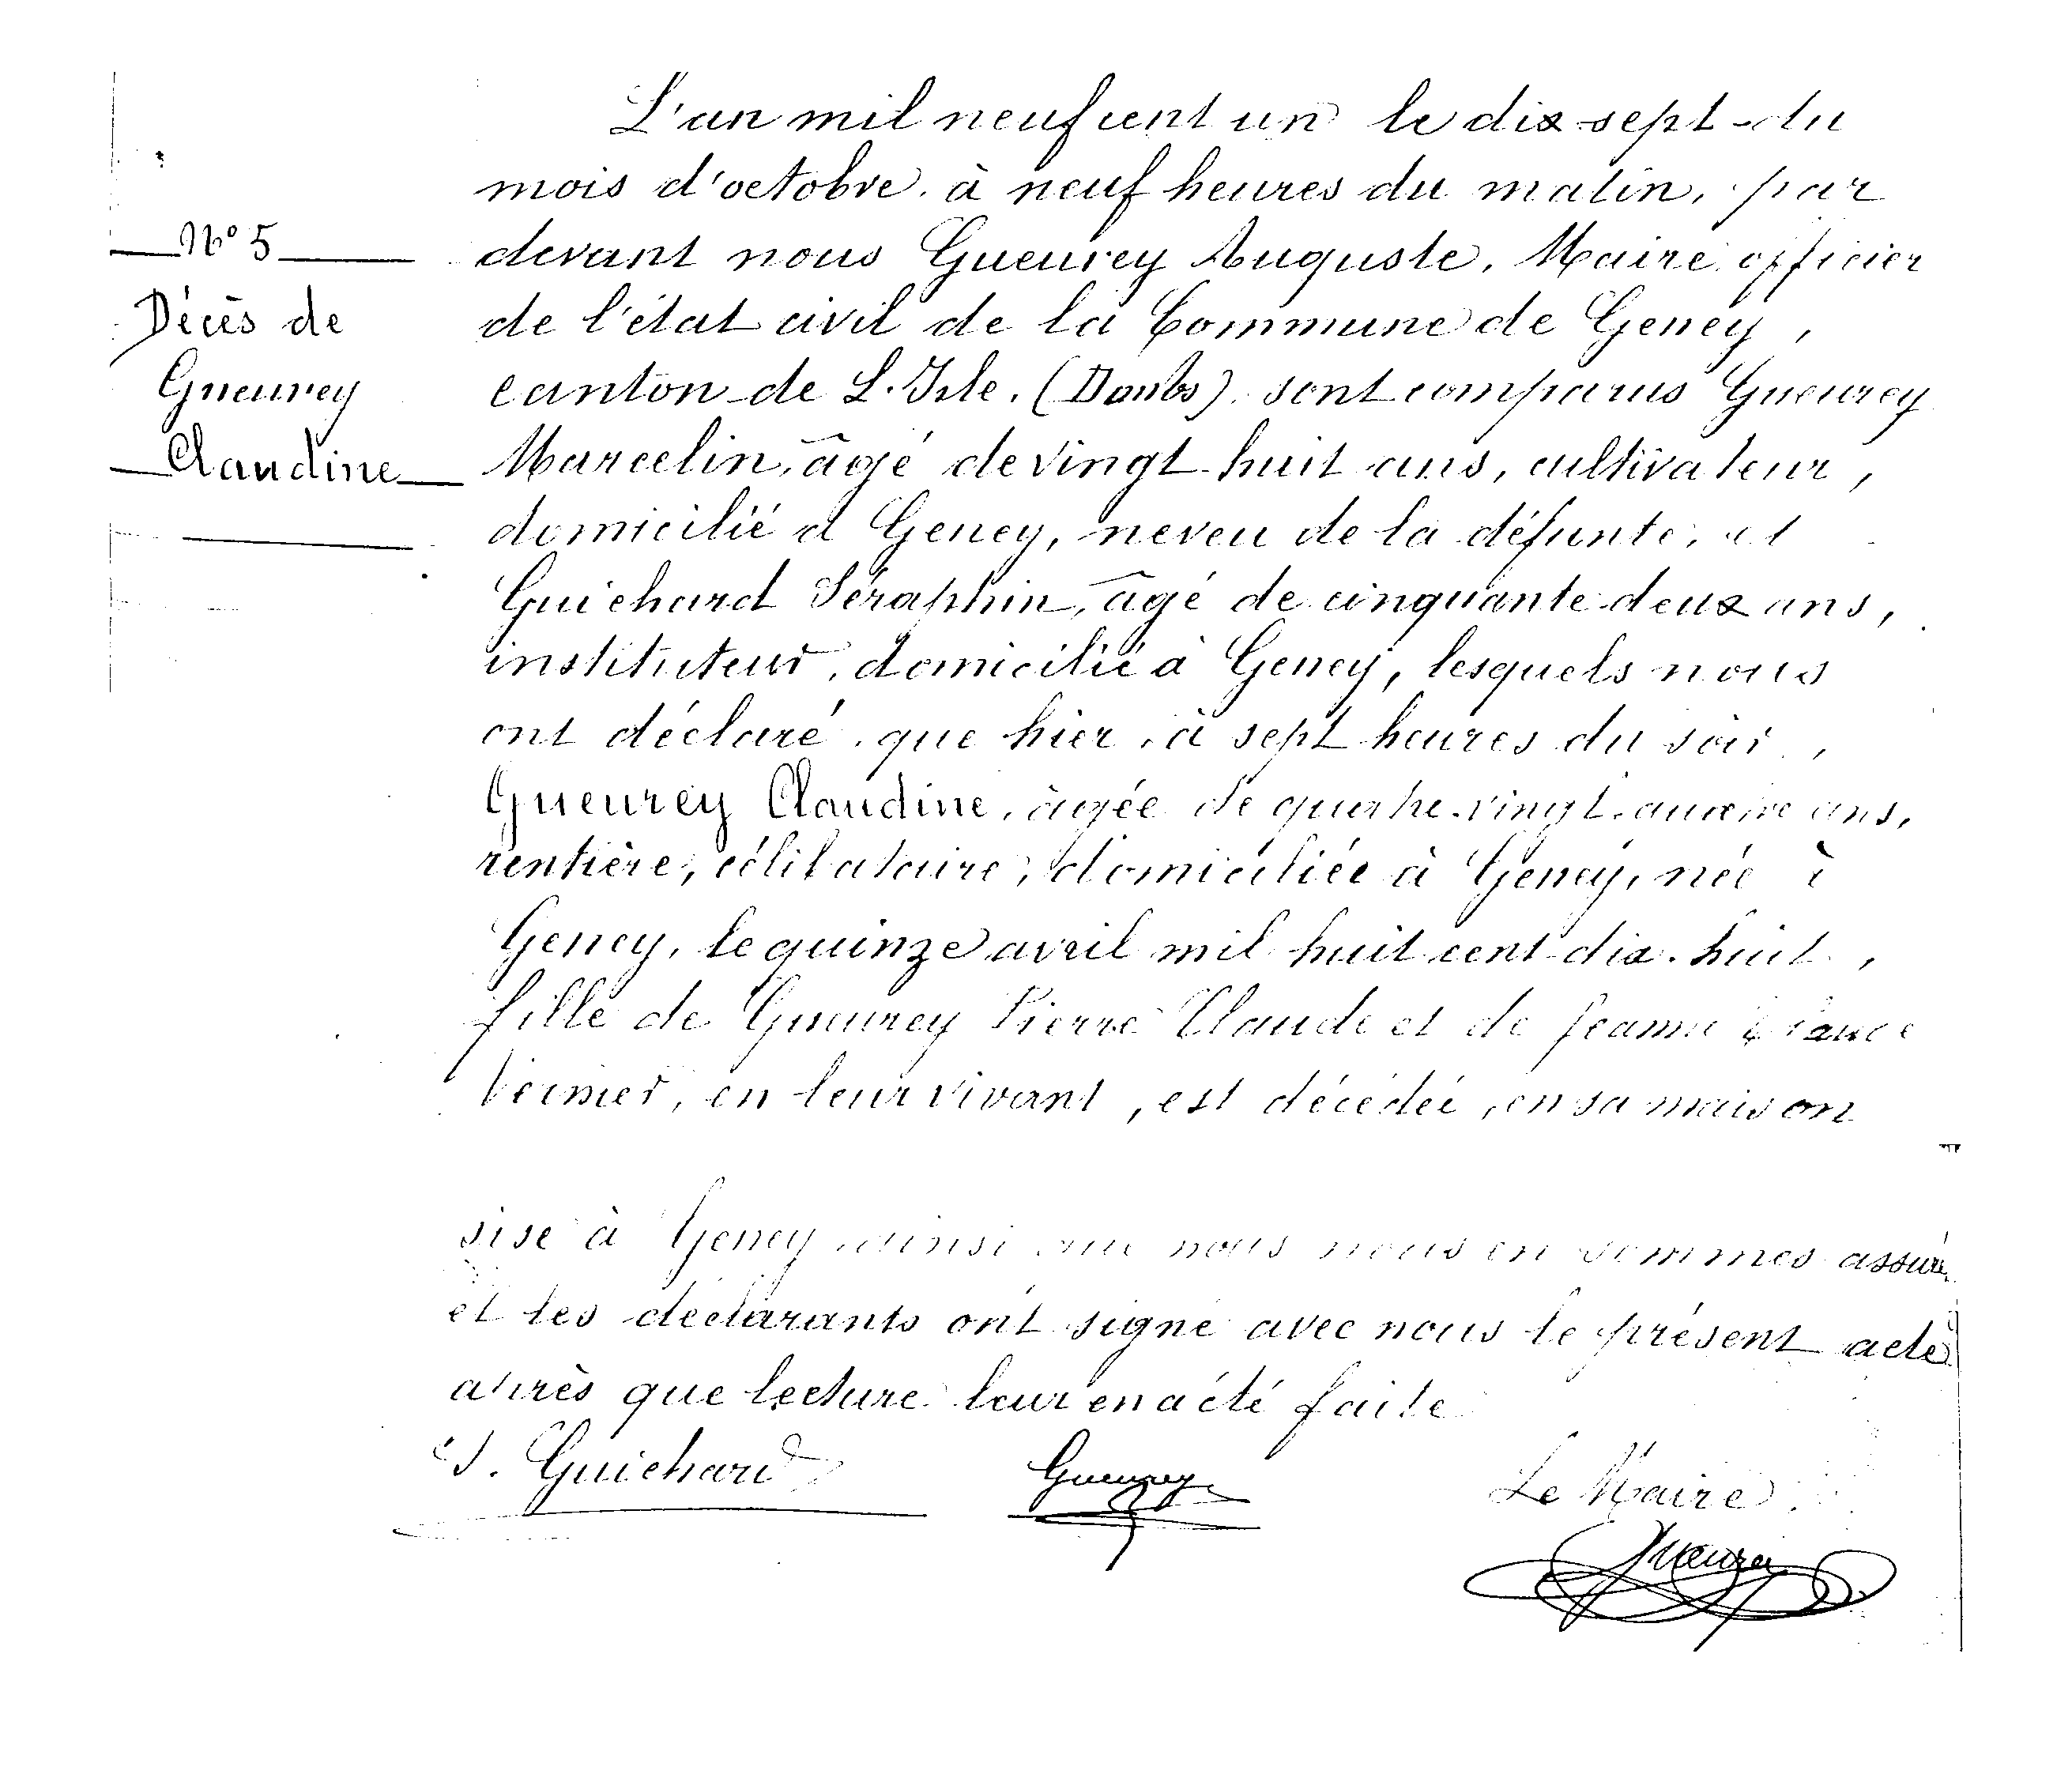 L'an mil neuf cent un le dix-sept du
mois d'octobre à neuf heures du matin, par
N° 5
devant nous Gueurey Auguste, Maire officier
Décès de
de l'état civil de la Commune de Geney,
Gueurey
canton de L'Isle. (Doubs). sont comparus Gueurey
Claudine
Marcelin, âgé de vingt-huit ans, cultivateur,
domicilié à Geney, neveu de la défunte, et
Guichard Séraphin, âgé de cinquante-deux ans,
instituteur, domicilié à Geney, lesquels nous
ont déclaré, que hier, à sept heures du soir,
Gueurey Claudine, âgée de quatre-vingt- ans,
rentière, célibataire, domiciliée à Geney, née à
Geney, le quinze avril mil huit cent dix-huit,
fille de Gueurey Pierre Claude et de Jeanne
Vernier, en leur vivant, est décédée, en sa maison
sise à Geney, ainsi que nous nous en sommes assuré,
et les déclarants ont signé avec nous le présent acte
après que lecture leur en a été faite
S. Guichard
Gueurey
Le Maire
Gueurey